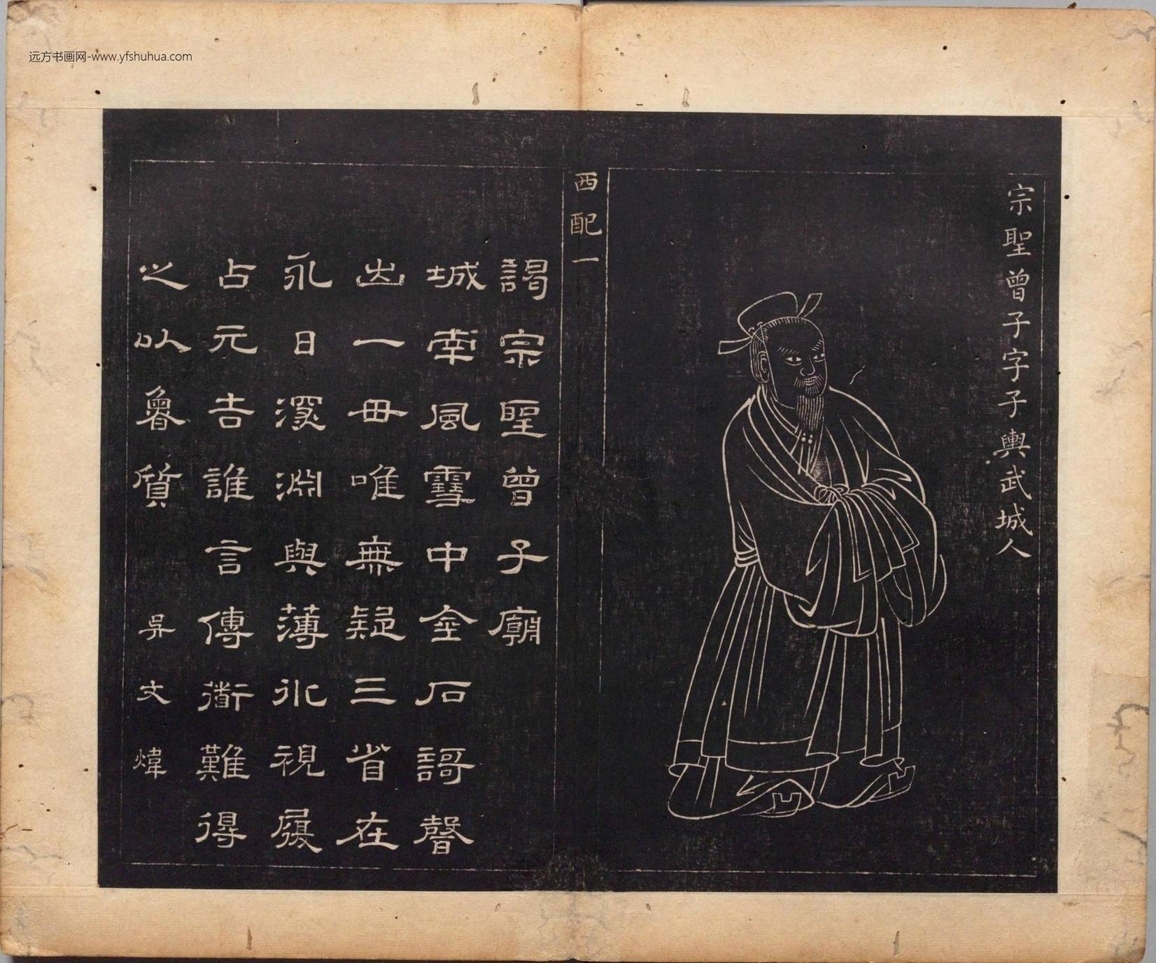 远方书画网-www.yfshuhua.com
宗聖曾子字子輿武城人
西配一
謁宗聖曾子廟
城南風雪中金石謌聲
出一毌唯無疑三省在
永日深淵與薄冰視履
占元吉誰言傳衜難得
之以魯質 吳文煒